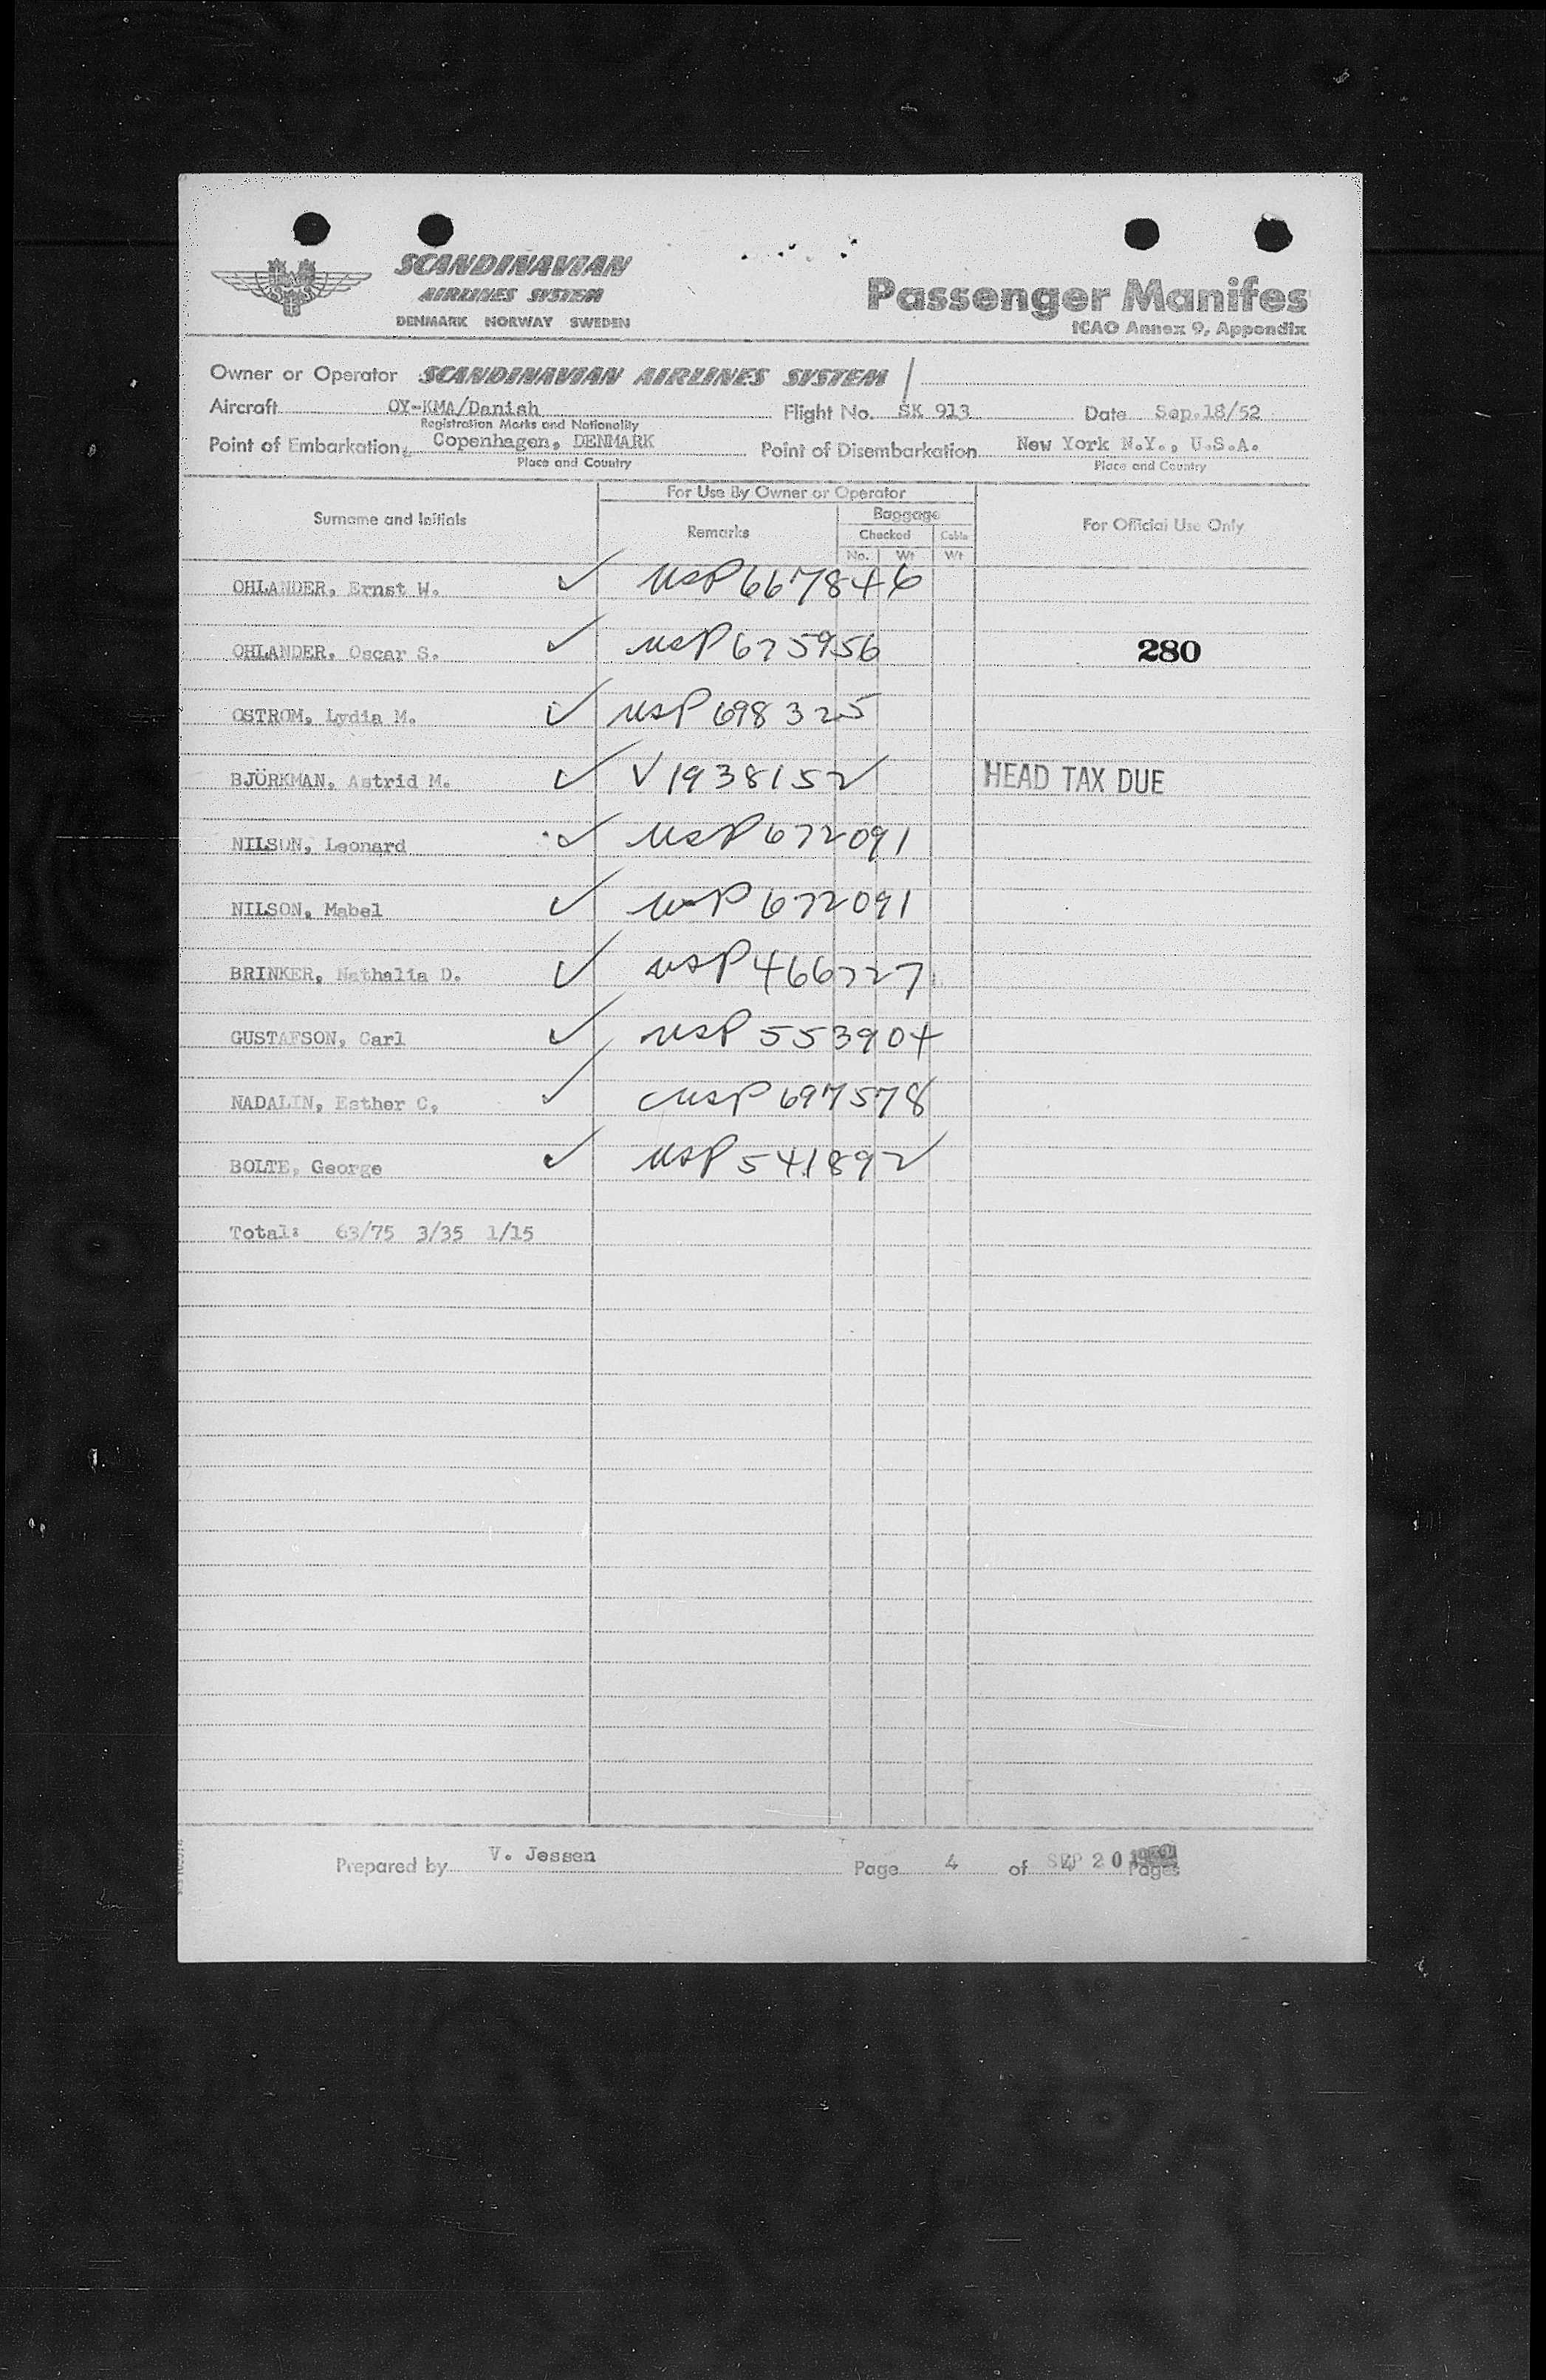 SCANDINAVIAN
AIRLINES SYSTEM
DENMARK NORWAY SWEDEN
Passenger Manifes
ICAO Annex 9, Appendix
Owner or Operator SCANDINAVIAN AIRLINES SYSTEM /
Aircraft OY-KMA/Danish Flight No. SK 913 Date Sep.18/52
Registration Marks and Nationality
Point of Embarkation Copenhagen, DENMARK Point of Disembarkation New York N.Y., U.S.A.
Place and Country Place and Country
For Use By Owner or Operator
Surname and Initials Remarks Baggage For Official Use Only
Checked Cabin
No. Wt Wt
OHLANDER, Ernst W. ✓ USP 667846
OHLANDER, Oscar S. ✓ USP 675956 280
OSTROM, Lydia M. ✓ USP 698325
BJÖRKMAN, Astrid M. ✓ V1938152 HEAD TAX DUE
NILSON, Leonard ✓ USP 672091
NILSON, Mabel ✓ USP 672091
BRINKER, Nathalia D. ✓ USP 466727
GUSTAFSON, Carl ✓ USP 553904
NADALIN, Esther C. ✓ USP 697578
BOLTE, George ✓ USP 541892
Total: 63/75 3/35 1/15
Prepared by V. Jessen Page 4 of 4 Pages
SEP 20 1952